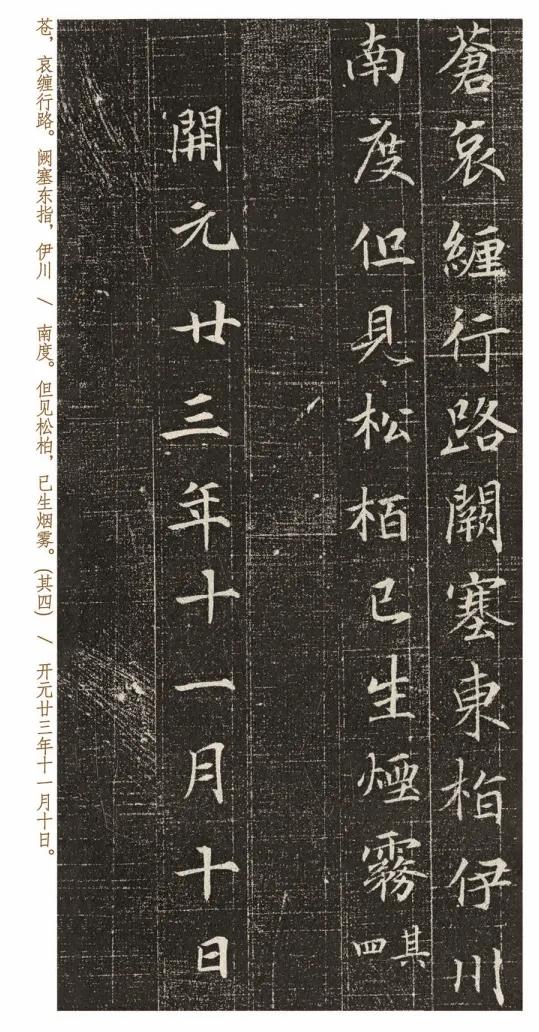 蒼哀纏行路闕塞東指伊川
南度但見松栢已生煙霧其四
開元廿三年十一月十日
苍，哀缠行路。阙塞东指，伊川 / 南度。但见松柏，已生烟雾。（其四） / 开元廿三年十一月十日。